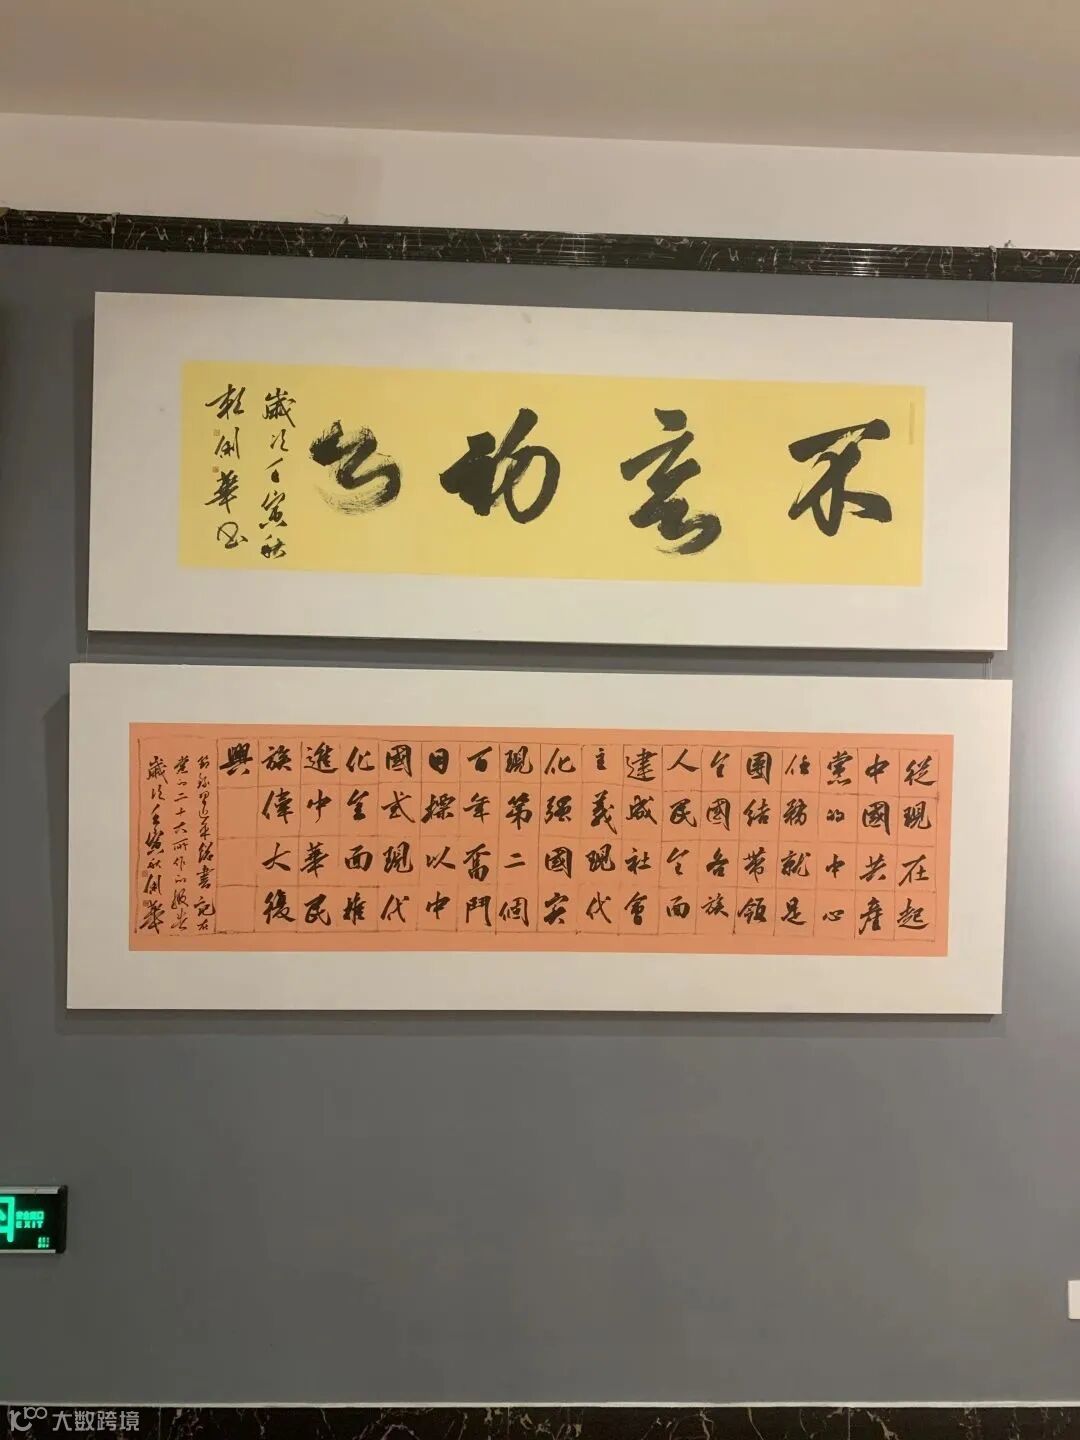 不忘初心
歲次壬寅秋
開華书
從現在起
中國共產
黨的中心
任務就是
團結帶領
全國各族
人民全面
建成社會
主義現代
化强國实
現第二個
百年奮鬥
目標以中
國式現代
化全面推
進中華民
族偉大復
興
節録習近平總書記在
黨的二十大所作的報告
歲次壬寅秋開華
安全出口
EXIT
大数跨境